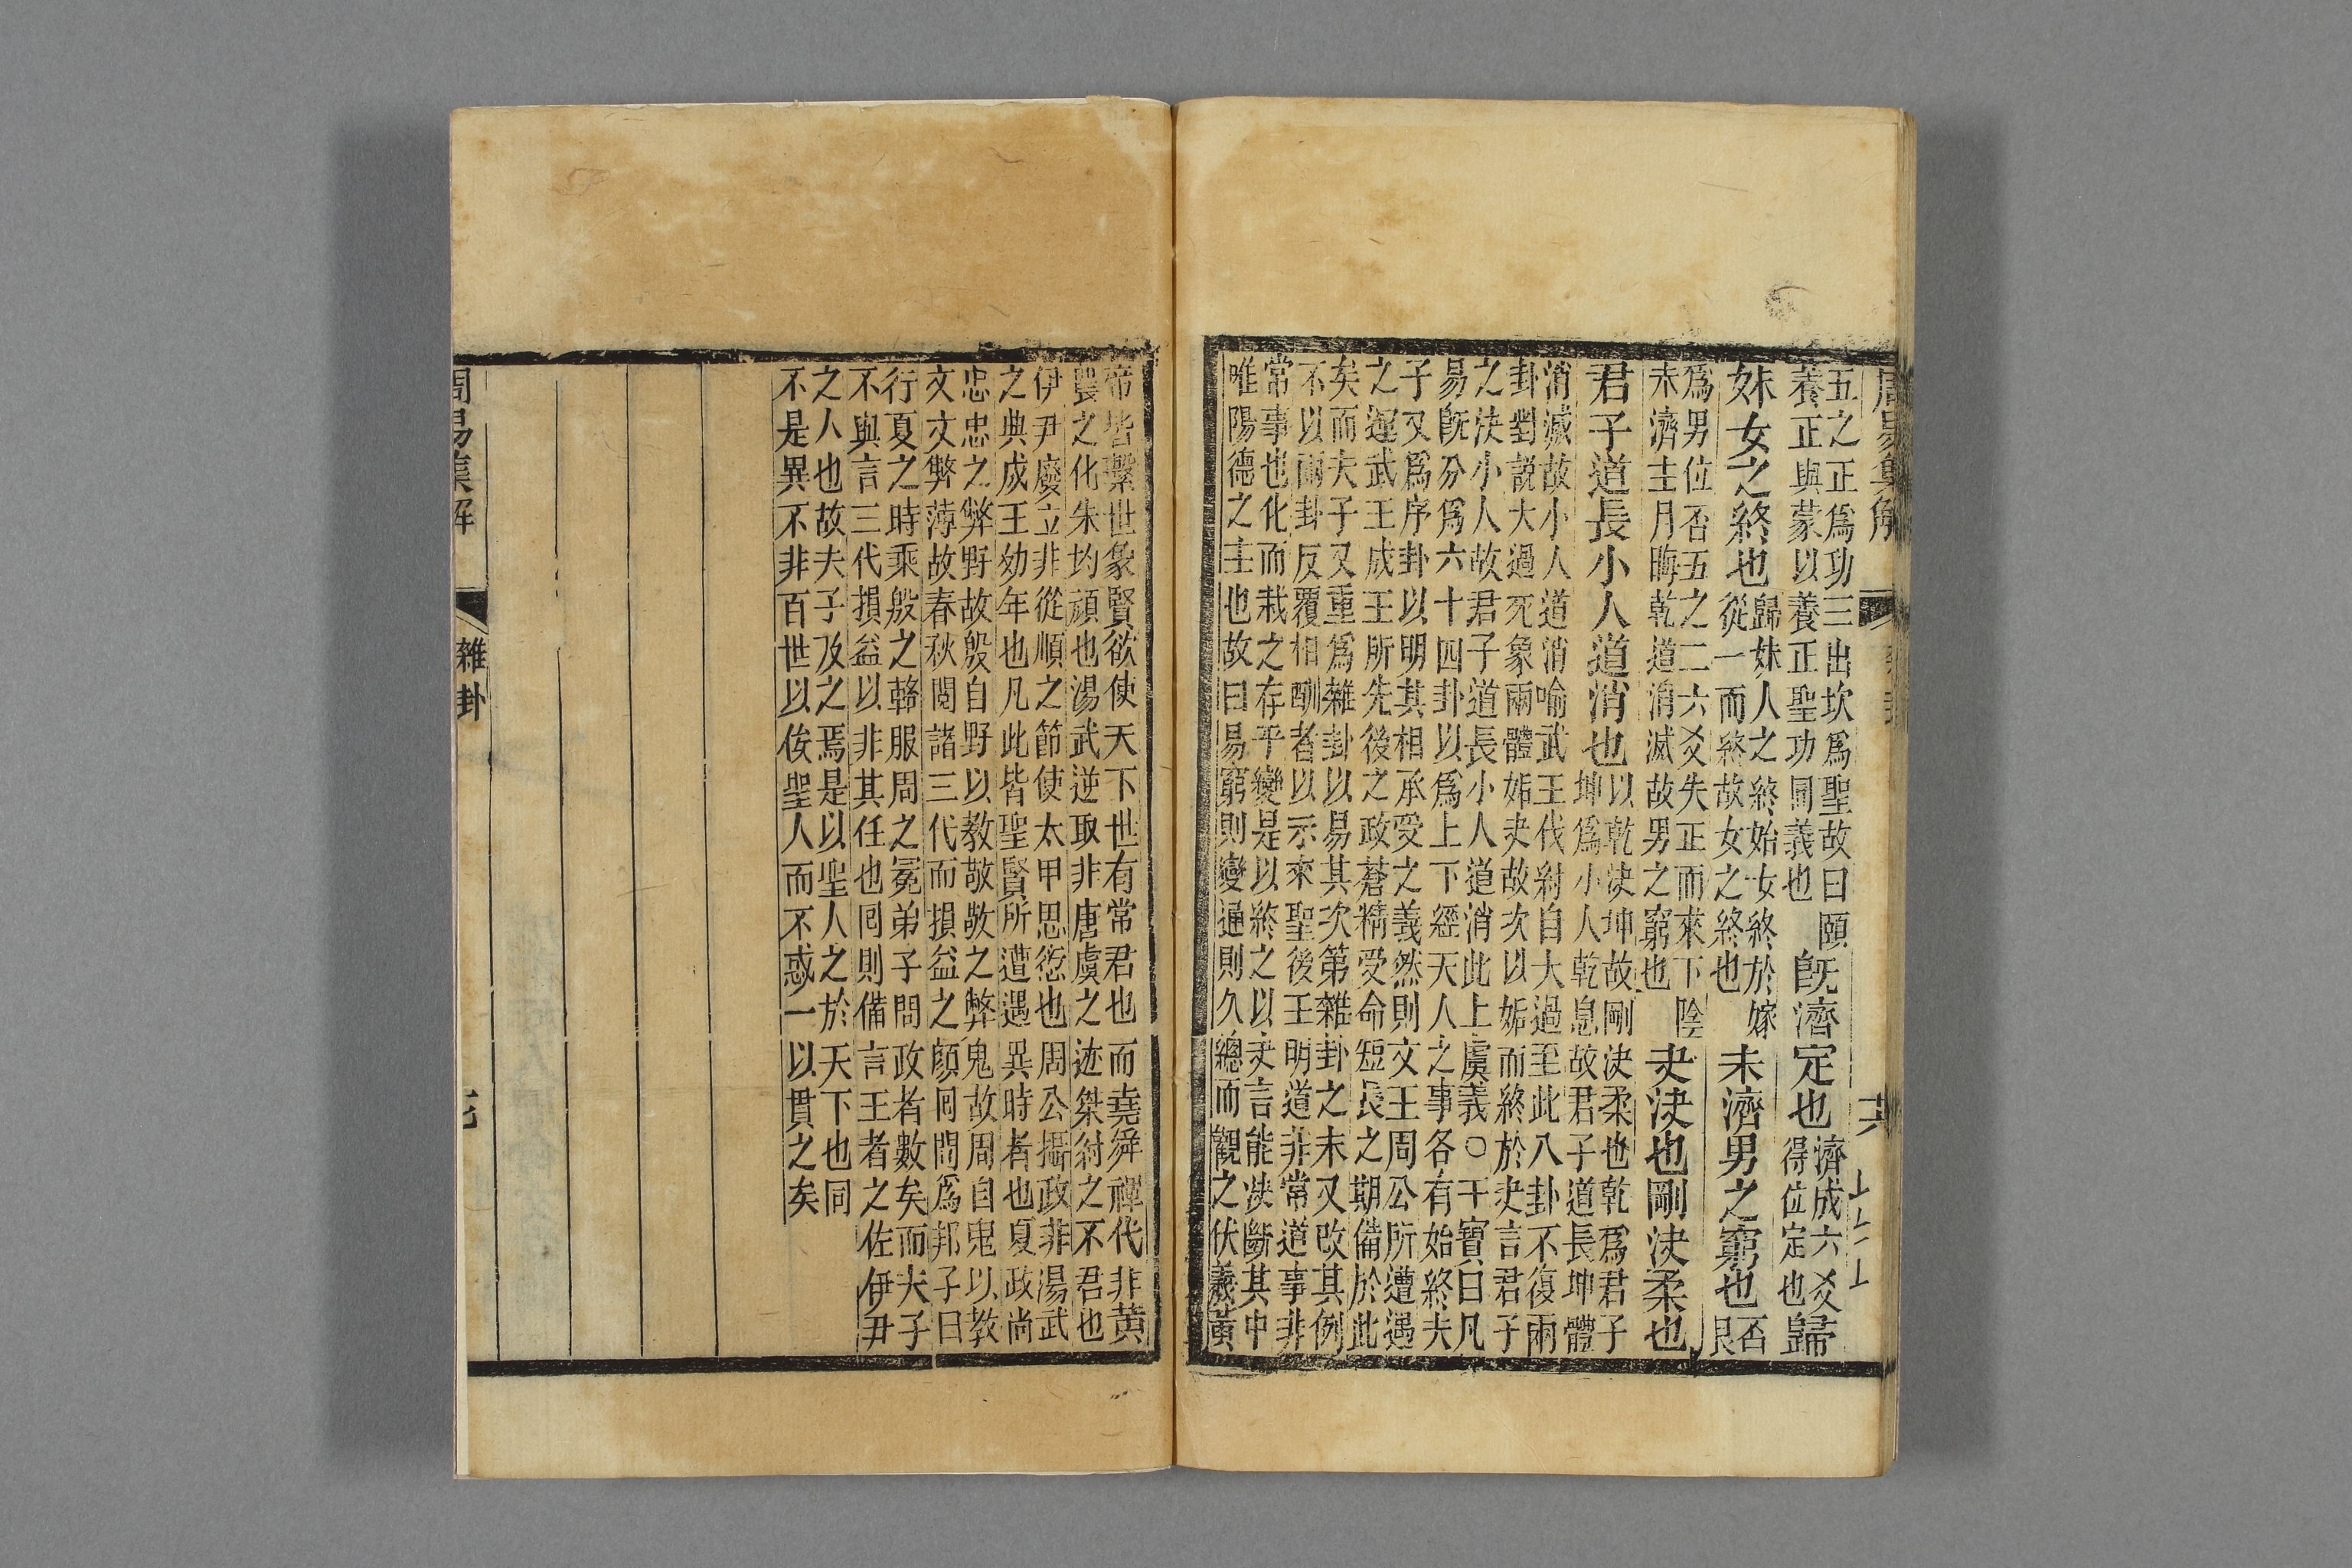 周易集解 雜卦
五之正爲功三出坎爲聖故曰頤
養正與蒙以養正聖功同義也
旣濟定也
濟成六爻
得位定也
歸
妹女之終也
歸妹人之終始女終於嫁
從一而終故女之終也
未濟男之窮也
否
艮
爲男位否五之二六爻失正而來下陰
未濟主月晦乾道消滅故男之窮也
夬決也剛決柔也
君子道長小人道消也
以乾決坤故剛決柔也乾爲君子
坤爲小人乾息故君子道長坤體
消滅故小人道消喻武王伐紂自大過至此八卦不復兩
卦對說大過死象兩體姤夬故次以姤而終於夬言君子
之決小人故君子道長小人道消此上虞義○干寶曰凡
易旣分爲六十四卦以爲上下經天人之事各有始終夫
子又爲序卦以明其相承受之義然則文王周公所遭遇
之運武王成王所先後之政蒼精受命短長之期備於此
矣而夫子又重爲雜卦以易其次第雜卦之末又改其例
不以兩卦反覆相酬者以示來聖後王明道非常道事非
常事也化而栽之存乎變是以終之以夬言能決斷其中
唯陽德之主也故曰易窮則變通則久總而觀之伏羲黃
帝皆繫世象賢欲使天下世有常君也而堯舜禪代非黃
農之化朱均頑也湯武逆取非唐虞之迹桀紂之不君也
伊尹廢立非從順之節使太甲思愆也周公攝政非湯武
之典成王幼年也凡此皆聖賢所遭遇異時者也夏政尚
忠忠之弊野故殷自野以教敬敬之弊鬼故周自鬼以教
文文弊薄故春秋閱諸三代而損益之顏囘問爲邦子曰
行夏之時乘殷之輅服周之冕弟子問政者數矣而夫子
不與言三代損益以非其任也囘則備言王者之佐伊尹
之人也故夫子及之焉是以聖人之於天下也同
不是異不非百世以俟聖人而不惑一以貫之矣
周易集解 雜卦